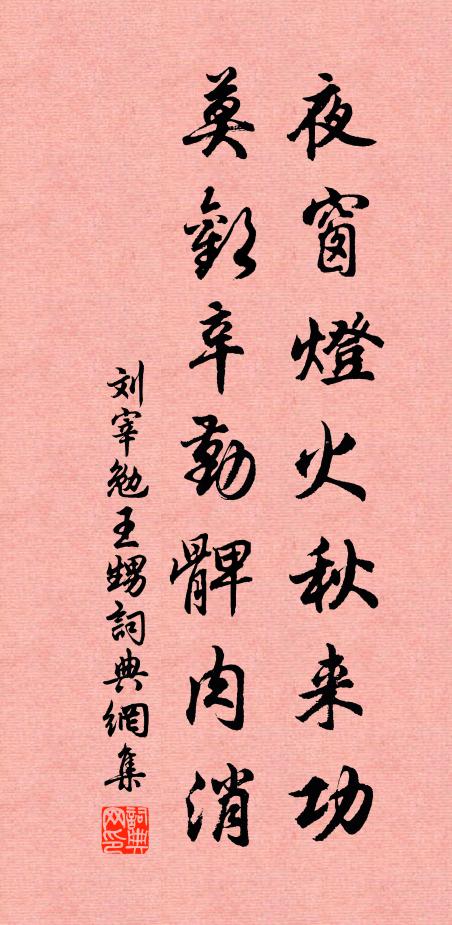 夜窗燈火秋来功
莫歎辛勤髀肉消
刘宰勉王甥詞典網集
詞典网印